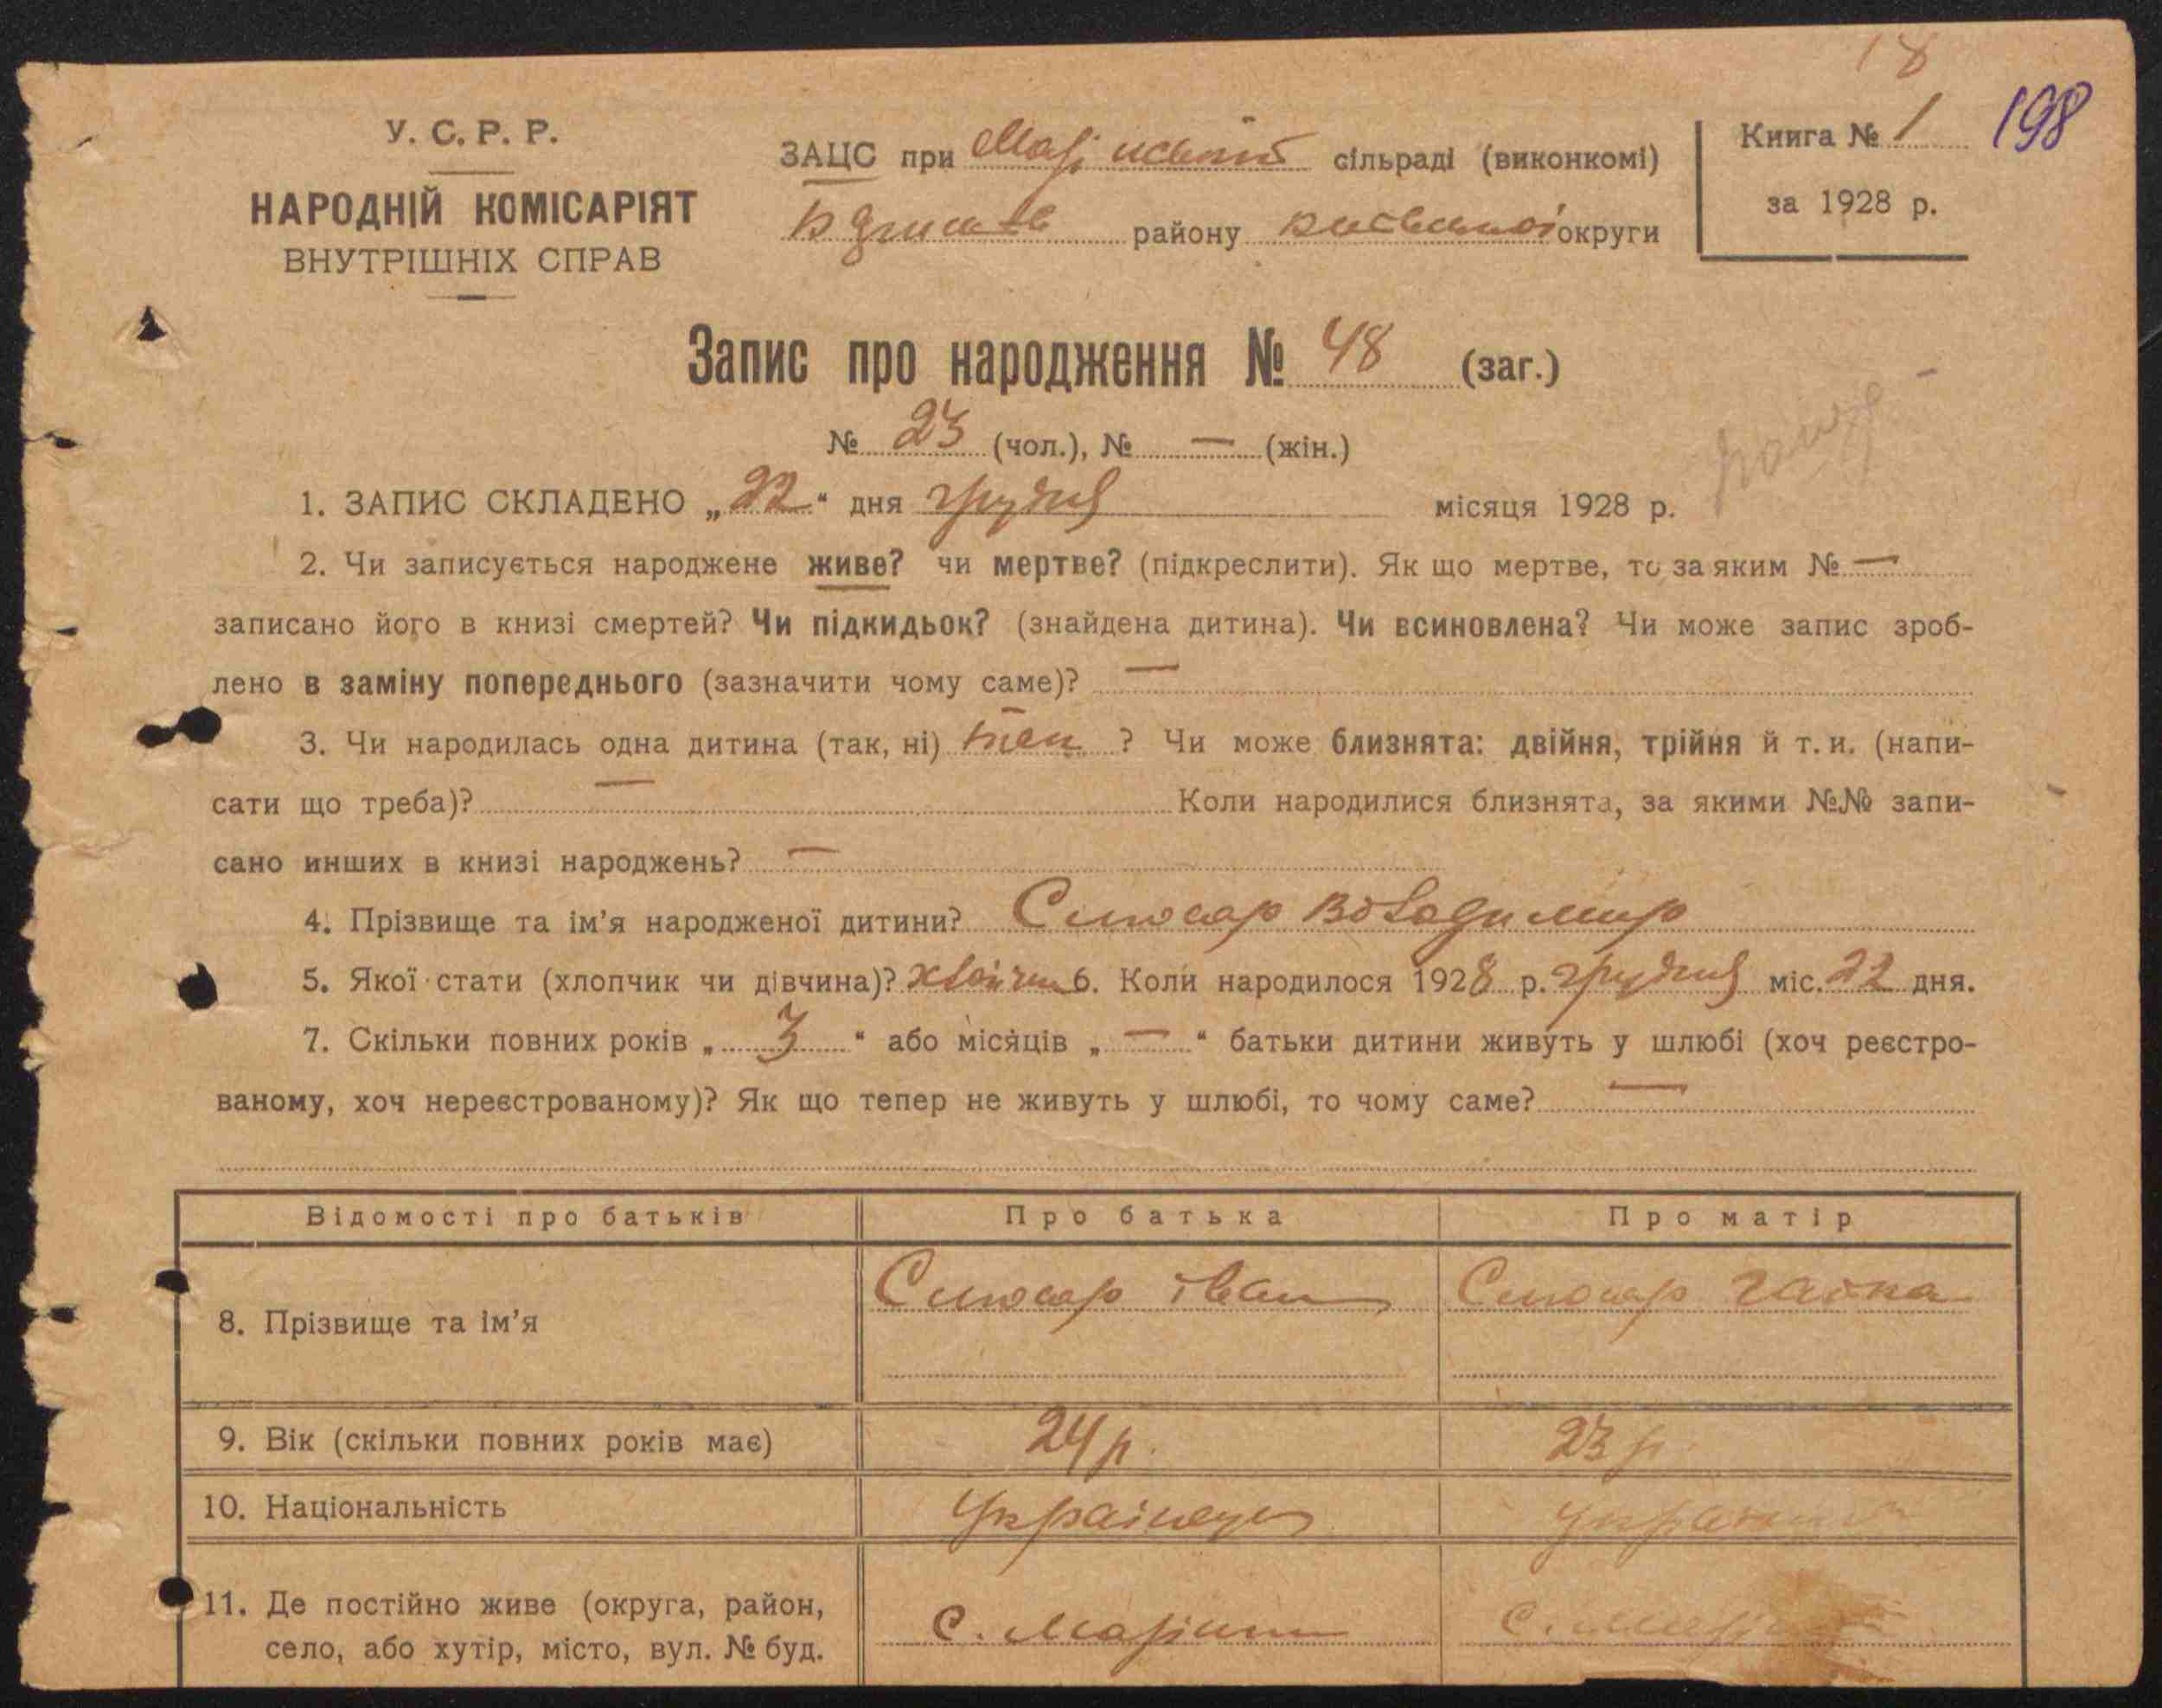 18
У. С. Р. Р.
НАРОДНІЙ КОМІСАРІЯТ
ВНУТРІШНІХ СПРАВ
ЗАЦС при сільраді (виконкомі)
району округи
Книга № 1
за 1928 р.
198
Запис про народження № 48 (заг.)
№ 23 (чол.), № — (жін.)
1. ЗАПИС СКЛАДЕНО „22“ дня грудня місяця 1928 р.
2. Чи записується народжене живе? чи мертве? (підкреслити). Як що мертве, то за яким № —
записано його в книзі смертей? Чи підкидьок? (знайдена дитина). Чи всиновлена? Чи може запис зроб-
лено в заміну попереднього (зазначити чому саме)? —
3. Чи народилась одна дитина (так, ні) так ? Чи може близнята: двійня, трійня й т. и. (напи-
сати що треба)? — Коли народилися близнята, за якими №№ запи-
сано инших в книзі народжень? —
4. Прізвище та ім’я народженої дитини? Слюсар Володимир
5. Якої стати (хлопчик чи дівчина)? 6. Коли народилося 1928 р. грудня міс. 22 дня.
7. Скільки повних років „ 3 “ або місяців „ — “ батьки дитини живуть у шлюбі (хоч реєстро-
ваному, хоч нереєстрованому)? Як що тепер не живуть у шлюбі, то чому саме? —
Відомості про батьків Про батька Про матір
8. Прізвище та ім’я Слюсар Іван Слюсар
9. Вік (скільки повних років має) 24 р. 23 р.
10. Національність Українець
11. Де постійно живе (округа, район,
село, або хутір, місто, вул. № буд. с. с.